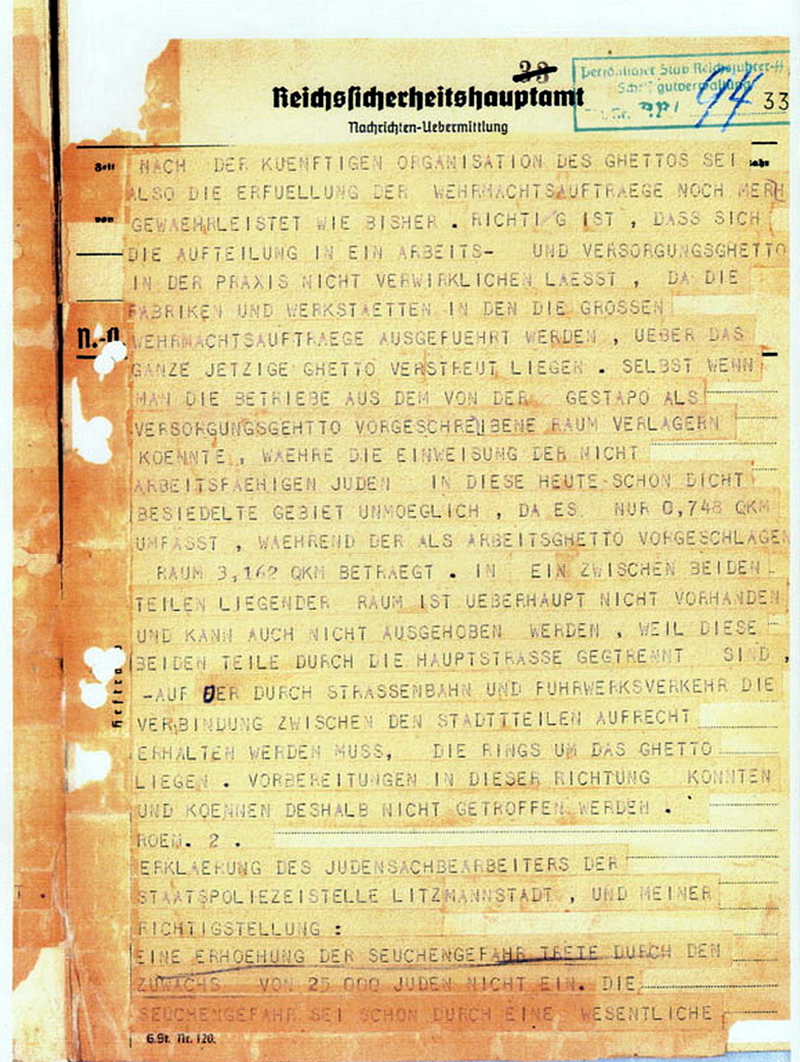 33
Persönlicher Stab Reichsführer-SS
Schriftgutverwaltung
94 33
Reichssicherheitshauptamt
Nachrichten-Uebermittlung
Zeit
von
N.-Ü.
NACH DER KUENFTIGEN ORGANISATION DES GHETTOS SEI
ALSO DIE ERFUELLUNG DER WEHRMACHTSAUFTRAEGE NOCH MERH
GEWAEHRLEISTET WIE BISHER . RICHTI G IST , DASS SICH
DIE AUFTEILUNG IN EIN ARBEITS- UND VERSORGUNGSGHETTO
IN DER PRAXIS NICHT VERWIRKLICHEN LAESST , DA DIE
FABRIKEN UND WERKSTAETTEN IN DEN DIE GROSSEN
WEHRMACHTSAUFTRAEGE AUSGEFUEHRT WERDEN , UEBER DAS
GANZE JETZIGE GHETTO VERSTREUT LIEGEN . SELBST WENN
MAN DIE BETRIEBE AUS DEM VON DER GESTAPO ALS
VERSORGUNGSGEHTTO VORGESCHREIBENE RAUM VERLAGERN
KOENNTE , WAEHRE DIE EINWEISUNG DER NICHT
ARBEITSFAEHIGEN JUDEN IN DIESE HEUTE SCHON DICHT
BESIEDELTE GEBIET UNMOEGLICH , DA ES NUR 0,748 QKM
UMFASST , WAEHREND DER ALS ARBEITSGHETTO VORGESCHLAGEN
RAUM 3,162 QKM BETRAEGT . IN EIN ZWISCHEN BEIDEN
TEILEN LIEGENDER RAUM IST UEBERHAUPT NICHT VORHANDEN
UND KANN AUCH NICHT AUSGEHOBEN WERDEN , WEIL DIESE
BEIDEN TEILE DURCH DIE HAUPTSTRASSE GEGTRENNT SIND ,
-AUF DER DURCH STRASSENBAHN UND FUHRWERKSVERKEHR DIE
VERBINDUNG ZWISCHEN DEN STADTTTEILEN AUFRECHT
ERHALTEN WERDEN MUSS, DIE RINGS UM DAS GHETTO
LIEGEN . VORBEREITUNGEN IN DIESER RICHTUNG KONNTEN
UND KOENNEN DESHALB NICHT GETROFFEN WERDEN .
ROEM. 2 .
ERKLAERUNG DES JUDENSACHBEARBEITERS DER
STAATSPOLIEZEISTELLE LITZMANNSTADT , UND MEINER
RICHTIGSTELLUNG :
EINE ERHOEHUNG DER SEUCHENGEFAHR TRETE DURCH DEN
ZUWACHS VON 25 000 JUDEN NICHT EIN. DIE
SEUCHENGEFAHR SEI SCHON DURCH EINE WESENTLICHE
G.St. Nr. 120.